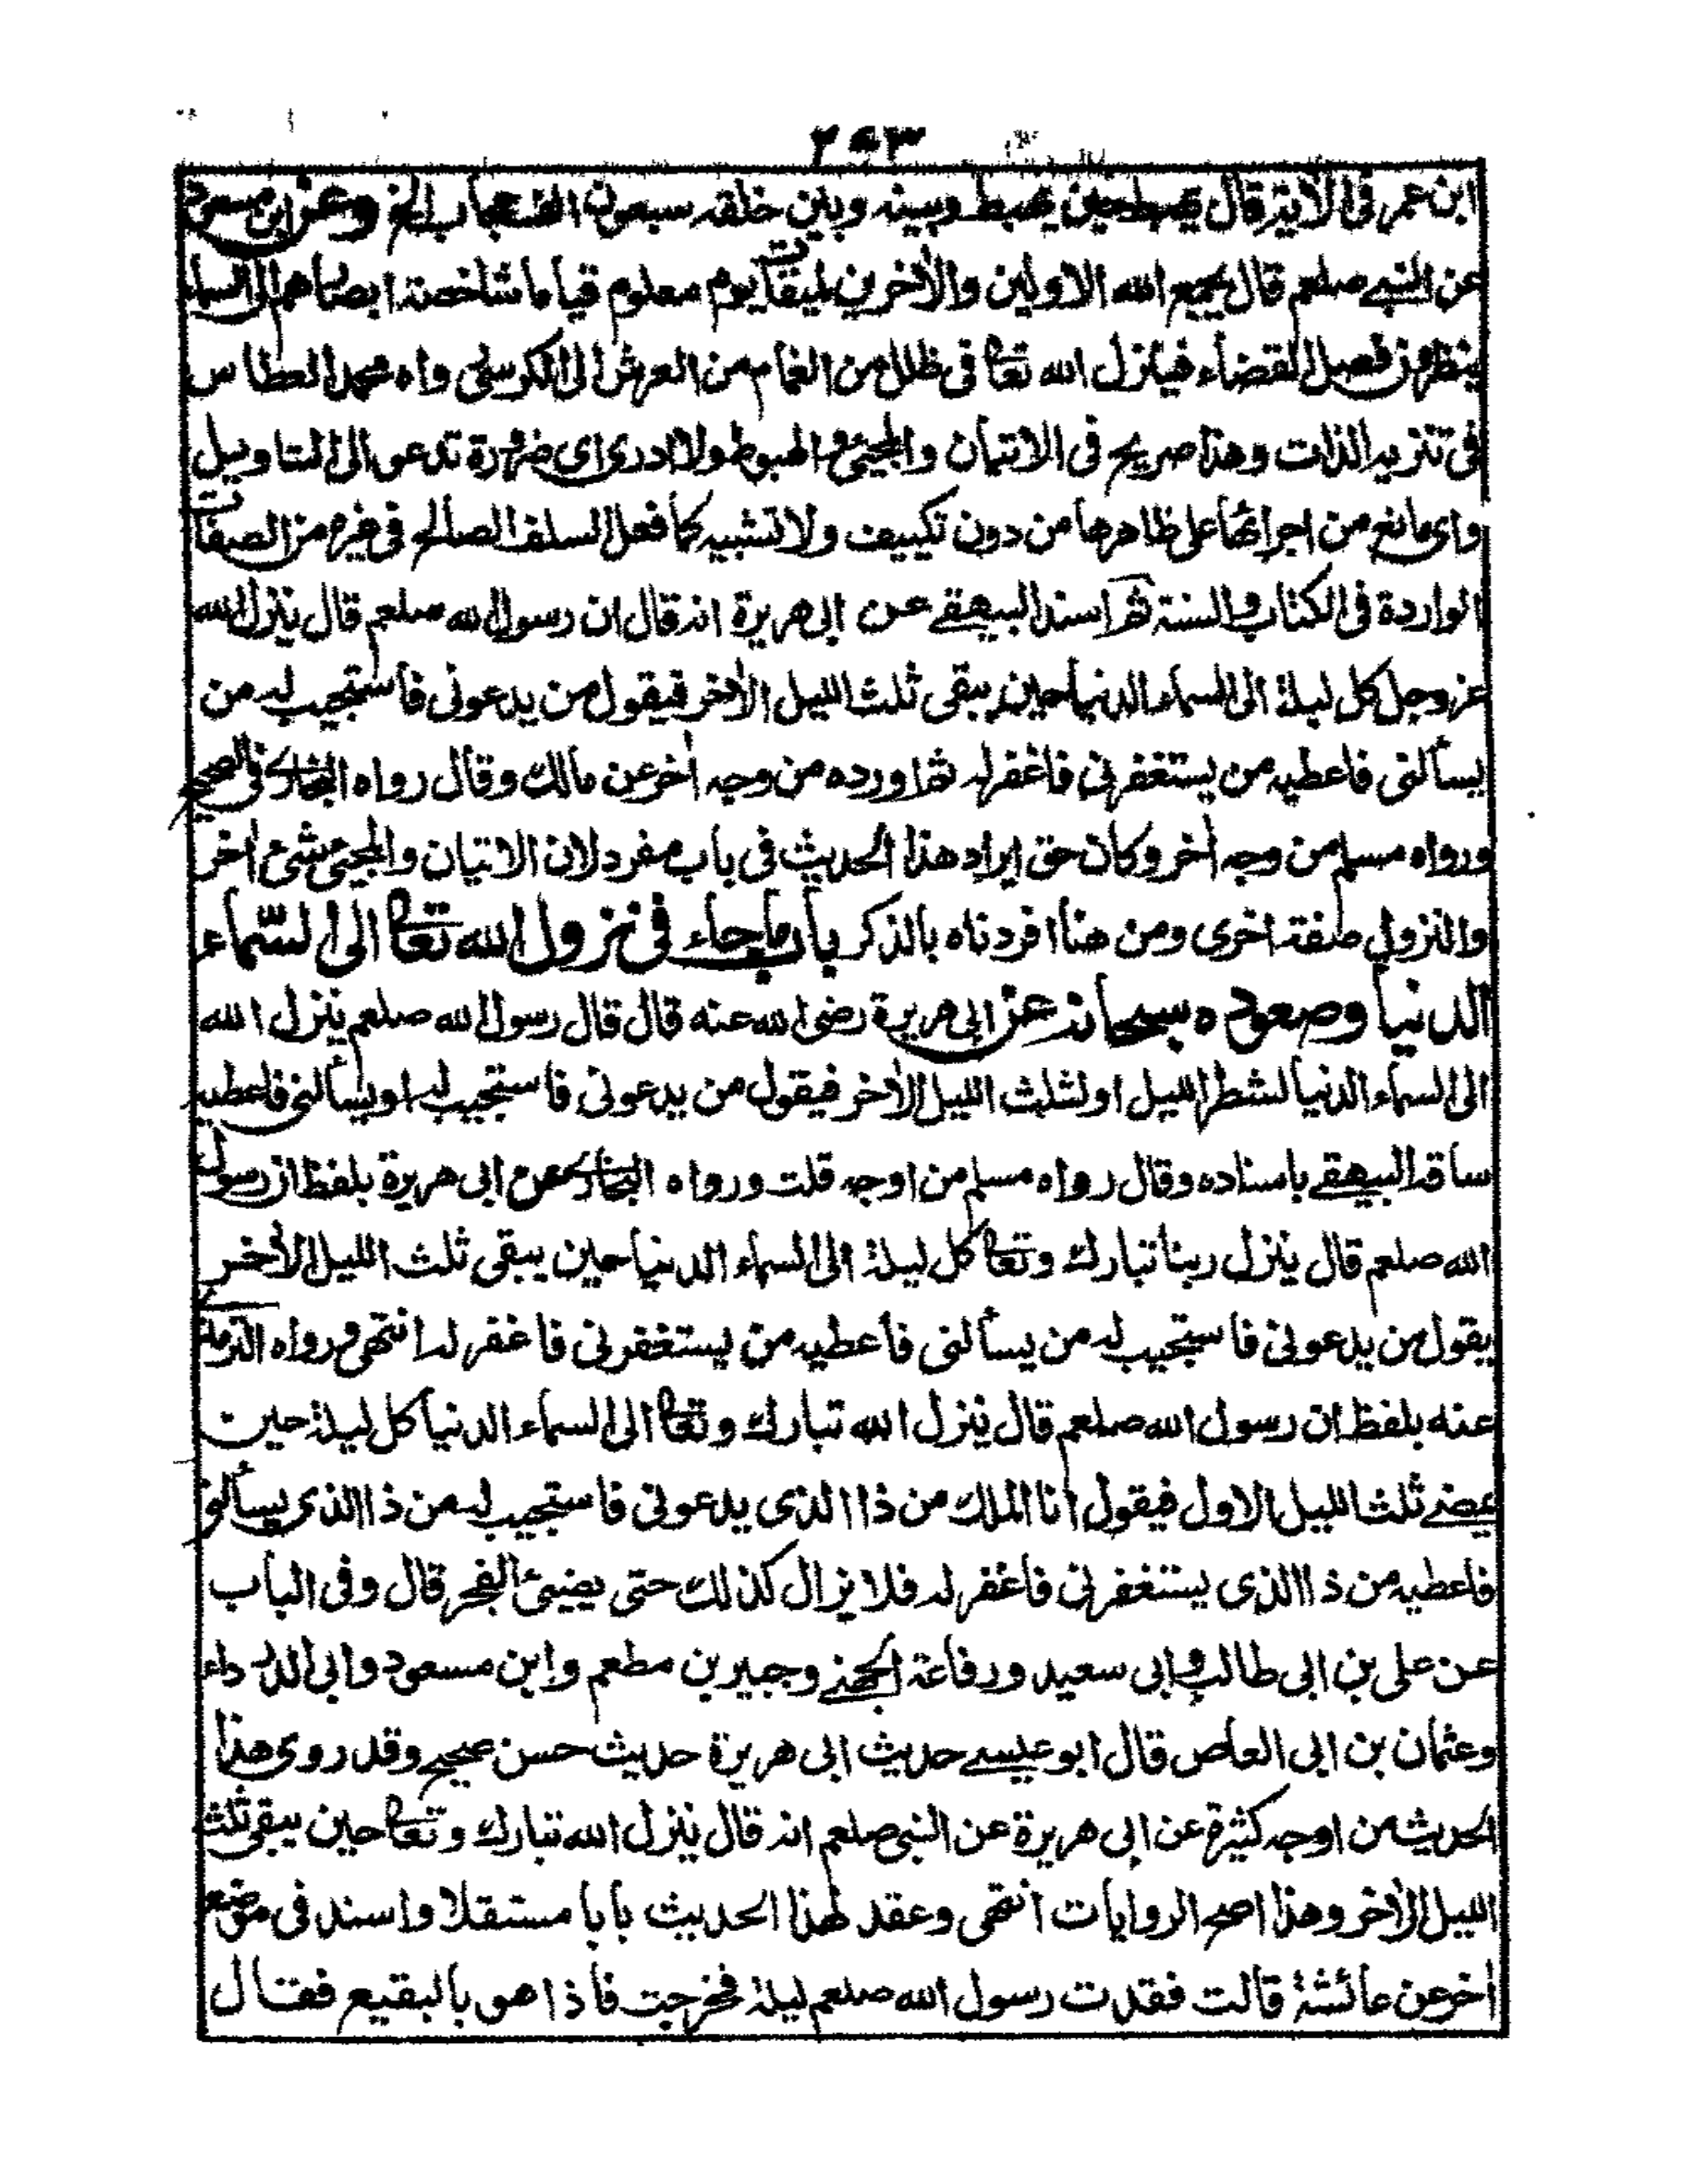 ابن عمر فى الآية قال يهبط حين يهبط وبينه وبين خلقه سبعون الف حجاب الخ وعن ابن مسعود
عن النبي صلعم قال يجمع الله الاولين والأخرين لميقات يوم معلوم قياما شاخصة ابصارهم الى السماء
ينظرون فصل القضاء فينزل الله تعا فى ظلل من الغمام من العرش الى الكرسى رواه محمد العطاس
فى تنزيه الذات وهذا صريح فى الاتيان والمجيئ والهبوط ولا ادرى اى ضرورة تدعو الى التاويل
واى مانع من اجرائها على ظاهرها من دون تكييف ولا تشبيه كما فعل السلف الصالح فى غيره من الصفات
الواردة فى الكتاب والسنة ثم اسند البيهقي عن ابى هريرة انه قال ان رسول الله صلعم قال ينزل الله
عز وجل كل ليلة الى السماء الدنيا حين يبقى ثلث الليل الأخر فيقول من يدعونى فأستجيب له من
يسألنى فاعطيه من يستغفرنى فاغفر له ثم اورده من وجه أخر عن مالك وقال رواه البخارى فى الصحيح
ورواه مسلم من وجه أخر وكان حق ايراد هذا الحديث فى باب مفرد لان الاتيان والمجيئ شئ أخر
والنزول صفة اخرى ومن هنا افردناه بالذكر باب ما جاء فى نزول الله تعا الى السّماء
الدنيا وصعوده سبحانه عن ابى هريرة رضى الله عنه قال قال رسول الله صلعم ينزل الله
الى السماء الدنيا لشطر الليل او لثلث الليل الأخر فيقول من يدعونى فاستجيب له او يسألنى فاعطيه
ساقه البيهقي باسناده وقال رواه مسلم من اوجه قلت ورواه البخارى عن ابى هريرة بلفظ ان رسول
الله صلعم قال ينزل ربنا تبارك وتعا كل ليلة الى السماء الدنيا حين يبقى ثلث الليل الأخر
يقول من يدعونى فاستجيب له من يسألنى فأعطيه من يستغفرنى فاغفر له انتهى ورواه الترمذى
عنه بلفظ ان رسول الله صلعم قال ينزل الله تبارك وتعا الى السماء الدنيا كل ليلة حين
يمضي ثلث الليل الاول فيقول انا الملك من ذا الذى يدعونى فاستجيب له من ذا الذى يسألنى
فاعطيه من ذا الذى يستغفرنى فاغفر له فلا يزال كذلك حتى يضيئ الفجر قال وفى الباب
عن على بن ابى طالب وابى سعيد ورفاعة الجهني وجبير بن مطعم وابن مسعود وابى الدرداء
وعثمان بن ابى العاص قال ابو عيسي حديث ابى هريرة حديث حسن صحيح وقد روى هذا
الحديث من اوجه كثيرة عن ابى هريرة عن النبى صلعم انه قال ينزل الله تبارك وتعا حين يبقى ثلث
الليل الأخر وهذا اصح الروايات انتهى وعقد لهذا الحديث بابا مستقلا واسند فى موضع
أخر عن عائشة قالت فقدت رسول الله صلعم ليلة فخرجت فأذا هو بالبقيع فقال